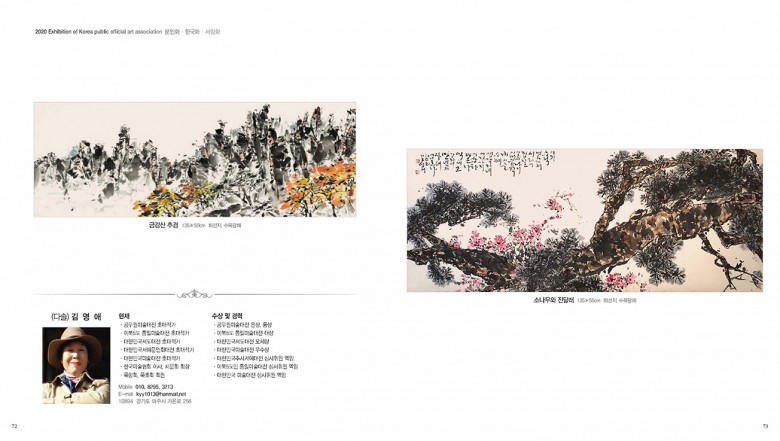 2020 Exhibition of Korea public official art association 문인화 · 한국화 · 서양화
금강산 추경 135×50cm 화선지, 수묵담채
소나무와 진달래 135×55cm 화선지, 수묵담채
(다솔) 김 영 애
현재
· 공무원미술대전 초대작가
· 이북5도 통일미술대전 초대작가
· 대한민국서도대전 초대작가
· 대한민국서예문인화대전 초대작가
· 대한민국미술대전 초대작가
· 한국미술협회 이사, 서문회 회장
· 묵림회, 묵호회 회원
Mobile 010. 8295. 3213
E-mail kyy1013@hanmail.net
10894 경기도 파주시 가온로 256
수상 및 경력
· 공무원미술대전 은상, 동상
· 이북5도 통일미술대전
· 대한민국서도대전 오체상
· 대한민국미술대전 우수상
· 대한민국 심사위원 역임
· 이북5도민 통일미술대전 심사위원 역임
· 대한민국 미술대전 심사위원 역임
72
73